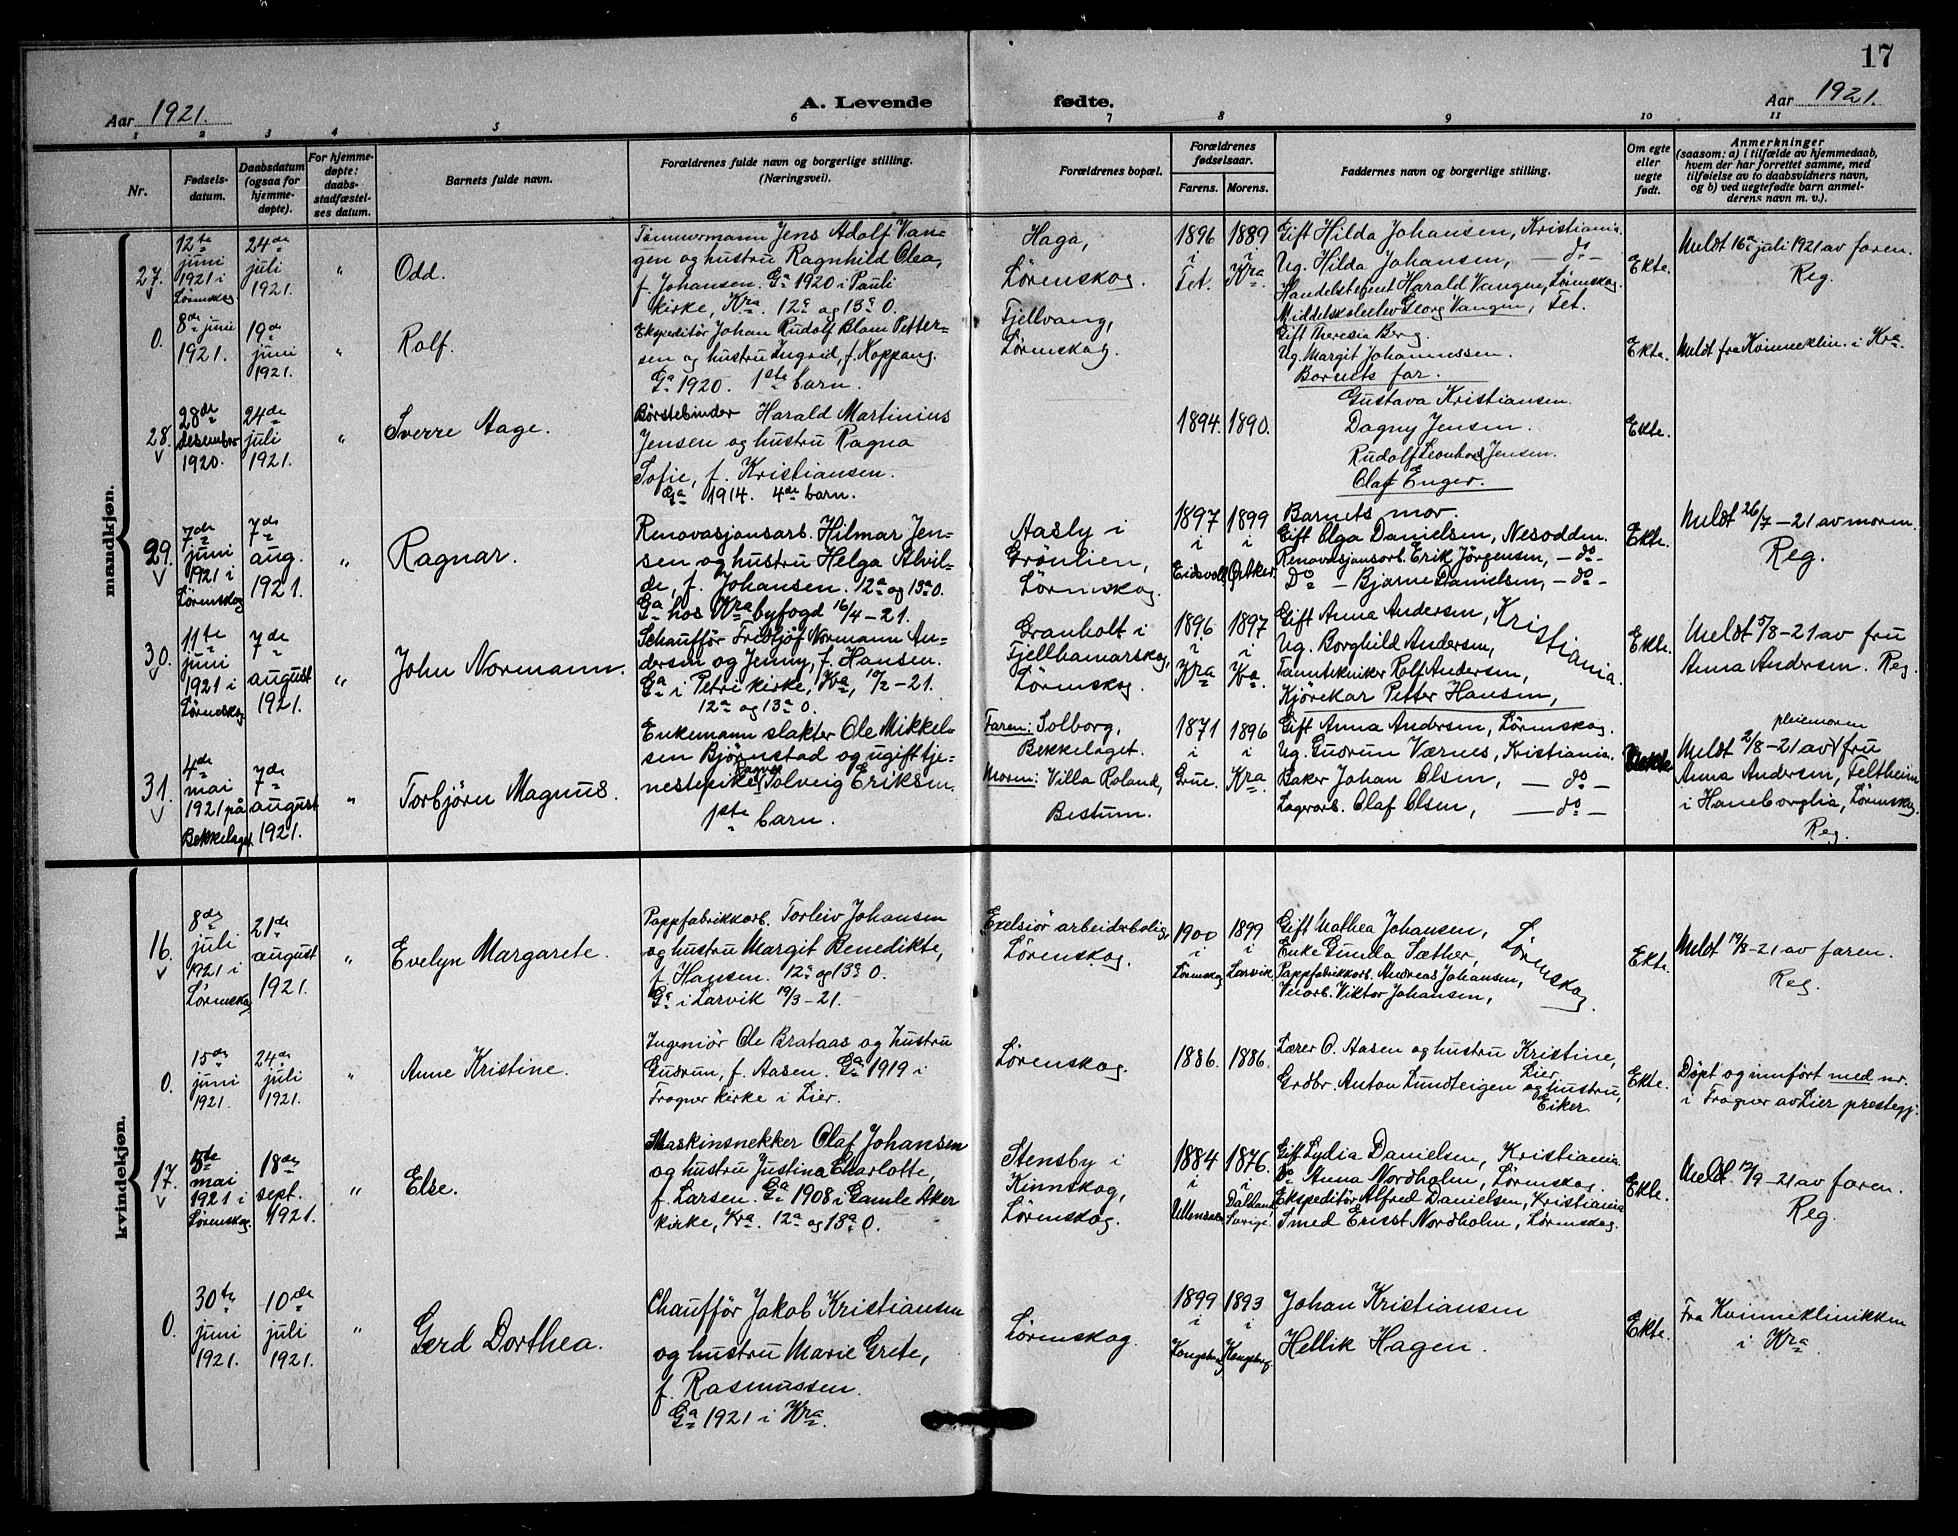 17
Aar 1921.
A. Levende fødte.
Aar 1921.
1 2 3 4 5 6 7 8 9 10 11
Nr.
Fødsels-
datum.
Daabsdatum
(ogsaa for
hjemme-
døpte).
For hjemme-
døpte:
daabs-
stadfæstel-
ses datum.
Barnets fulde navn.
Forældrenes fulde navn og borgerlige stilling.
(Næringsvei).
Forældrenes bopæl.
Forældrenes
fødselsaar.
Farens. Morens.
Faddernes navn og borgerlige stilling.
Om egte
eller
uegte
født.
Anmerkninger
(saasom: a) i tilfælde av hjemmedaab,
hvem der har forrettet samme, med
tilføielse av to daabsvidners navn,
og b) ved uegtefødte barn anmel-
derens navn m. v.).
mandkjøn.
27.
12te
juni
1921 i
Lørenskog
24de
juli
1921.
"
Odd.
Tømmermann Jens Adolf Van-
gen og hustru Ragnhild Olea,
f. Johansen. Ga 1920 i Pauli
kirke, Kra. 12a og 13a 0.
Haga,
Lørenskog.
1896
i
Fet.
1889
i
Kra.
Gift Hilda Johansen, Kristiania
Ug. Hilda Johansen, — do —
Handelsbetjent Harald Vangen, Lørenskog.
Middelskoleelev Georg Vangen, Fet.
Ekte.
Meldt 16a juli 1921 av faren.
Reg.
0.
8de juni
1921.
19de
juni
1921.
"
Rolf.
Ekspeditör Johan Rudolf Blom Petter-
sen og hustru Ingrid, f. Koppang.
Ga 1920. 1ste barn.
Fjellvang,
Lørenskog.
Gift Theresia Berg.
Ug. Margit Johannessen.
Barnets far.
Ekte.
Meldt fra Kvinneklin. i Kra.
28.
28de
desember
1920.
24de
juli
1921.
"
Sverre Aage.
Børstebinder Harald Martinius
Jensen og hustru Ragna
Sofie, f. Kristiansen.
Ga 1914. 4de barn.
1894.
1890.
Gustava Kristiansen.
Dagny Jensen.
Rudolf Leonhard Jensen.
Olaf Enger.
Ekte.
29.
7de
juni
1921 i
Lørenskog
7de
aug.
1921.
"
Ragnar.
Renovasjonsarb. Hilmar Jen-
sen og hustru Helga Alvil-
de, f. Johansen. 12a og 13a 0.
Ga hos Kra byfogd 16/4 - 21.
Aasly i
Grönlien,
Lörenskog.
1897
i
Eidsvold
1899
i
Ørtker.
Barnets mor.
Gift Olga Danielsen, Nesodden.
Renovasjonsarb. Erik Jörgensen, — do —
do — Bjarne Danielsen, — do —
Ekte.
Meldt 26/7 - 21 av moren.
Reg.
30.
11te
juni
1921 i
Lørenskog
7de
august
1921.
"
John Normann.
Schauffør Fridtjof Normann An-
dersen og Jenny, f. Hansen.
Ga i Petri kirke, Kra, 10/2 - 21.
12a og 13a 0.
Granholt i
Fjellhamarskog,
Lørenskog.
1896
i
Kra
1897
i
Kra.
Gift Anna Andersen,
Ug. Borghild Andersen,
Tanntekniker Rolf Andersen,
Kjørekar Petter Hansen,
Kristiania.
Ekte.
Meldt 5/8 - 21 av fru
Anna Andersen. Reg.
31.
4de
mai
1921 på
Bekkelaget
7de
august
1921.
"
Torbjörn Magnus.
Enkemann slakter Ole Mikkel-
sen Bjørnstad og ugift tje-
nestepike Solveig Eriksen.
1ste barn.
Faren: Solborg,
Bekkelaget.
Moren: Villa Roland,
Bestum.
1871
i
Grue.
1896
i
Kra.
Gift Anna Andersen, Lørenskog.
Ug. Gudrun Værnes, Kristiania.
Baker Johan Olsen, — do —
Lagerarb. Olaf Olsen, — do —
Uekte
Meldt 2/8 - 21 av pleiemoren fru
Anna Andersen, Feltheim
i Haneborglia, Lørenskog.
Reg.
kvindekjøn.
16.
8de
juli
1921 i
Lørenskog
21de
august
1921.
"
Evelyn Margarete.
Pappfabrikkarb. Torleiv Johansen
og hustru Margit Benedikte,
f. Hansen. 12a og 13a 0.
Ga i Larvik 19/3 - 21.
Exelsiør arbeiderbolig,
Lørenskog.
1900
i
Lørenskog
1899
i
Larvik.
Gift Mathea Johansen,
Enke Gunda Sæther,
Pappfabrikkarb. Andreas Johansen,
Veiarb. Viktor Johansen,
Lørenskog
Ekte.
Meldt 19/8 - 21 av faren.
Reg.
0.
15de
juni
1921.
24de
juli
1921.
"
Anne Kristine.
Ingeniör Ole Brataas og hustru
Gudrun, f. Aasen. Ga 1919 i
Frogner kirke i Lier.
Lørenskog.
1886.
1886.
Lærer O. Aasen og hustru Kristine,
Lier,
Grdbr. Anton Lundteigen og hustru,
Eiker.
Ekte.
Døpt og innført med nr.
i Frogner av Lier prestegj.
17.
5te
mai
1921 i
Lørenskog.
18de
sept.
1921.
"
Else.
Maskinsnekker Olaf Johansen
og hustru Justina Charlotte,
f. Larsen. Ga 1908 i Gamle Aker
kirke, Kra. 12a og 13a 0.
Stensby i
Kinnskog,
Lørenskog.
1884
i
Ullensaker
1876.
i
Dalsland,
Sverige.
Gift Lydia Danielsen, Kristiania
do Anna Nordholm, Lørenskog.
Ekspeditör Alfred Danielsen, Kristiania
Smed Ernst Nordholm, Lørenskog.
Ekte.
Meldt 12/9 - 21 av faren.
Reg.
0.
30te
juni
1921.
10de
juli
1921.
"
Gerd Dorthea.
Chauffør Jakob Kristiansen
og hustru Marie Grete,
f. Rasmussen.
Ga 1921 i Kra.
Lørenskog.
1899
i
Kongsberg
1893
i
Kongsberg.
Johan Kristiansen
Hellik Hagen.
Ekte.
Fra Kvinneklinikken
i Kra